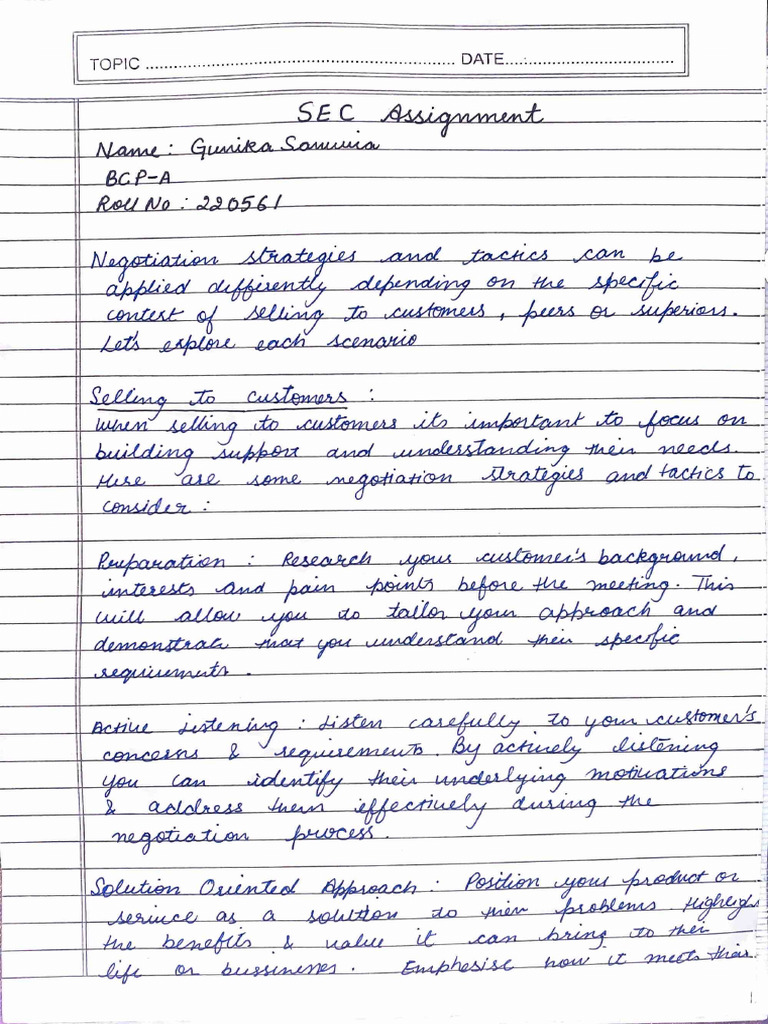 TOPIC ................................ DATE................................
SEC Assignment
Name : Gunika
BCP-A
Roll No : 220561
Negotiation strategies and tactics can be
applied differently depending on the specific
context of selling to customers, peers or superiors.
Let's explore each scenario
Selling to customers :
When selling to customers its important to focus on
building support and understanding their needs.
Here are some negotiation strategies and tactics to
consider :
Preparation : Research your customer's background,
interests and pain points before the meeting. This
will allow you to tailor your approach and
demonstrate that you understand their specific
requirements.
Active Listening : Listen carefully to your customer's
concerns & requirements. By actively listening
you can identify their underlying motivations
& address them effectively during the
negotiation process.
Solution Oriented Approach : Position your product or
service as a solution to their problems.
the benefits & value it can bring to their
life or Emphesise how it meets their